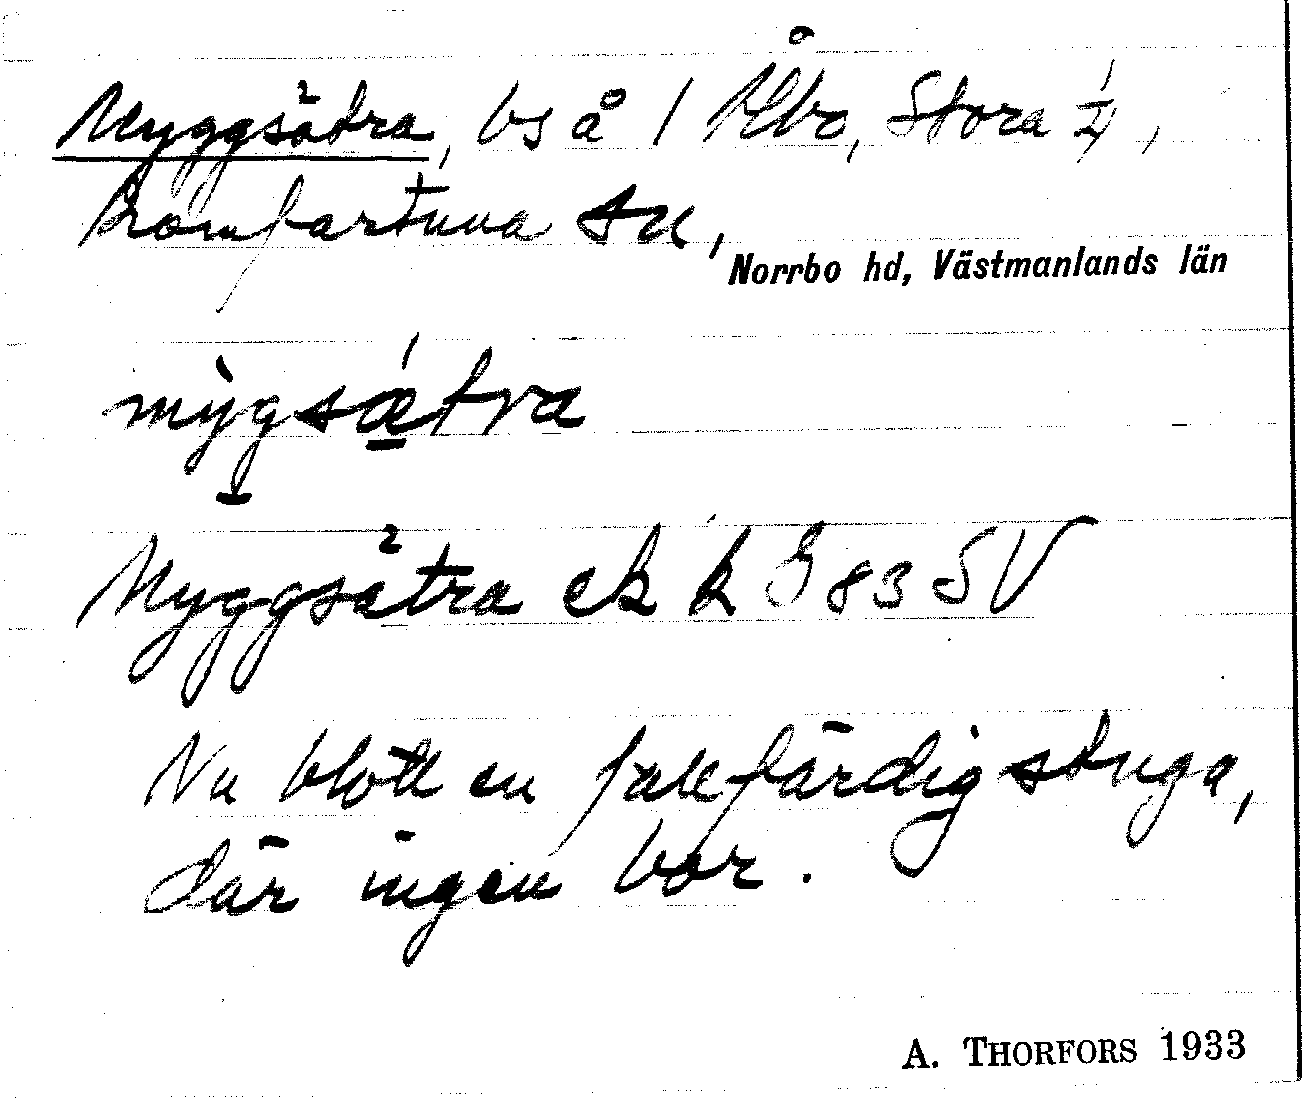 Myggsätra, bs å 1 Åbo, Stora 1/4,
Romfartuna sn,
Norrbo hd, Västmanlands län
mỳgsǽtra
Myggsätra ek k G 83 SV
Nu blott en fallfärdig stuga,
där ingen bor.
A. THORFORS 1933